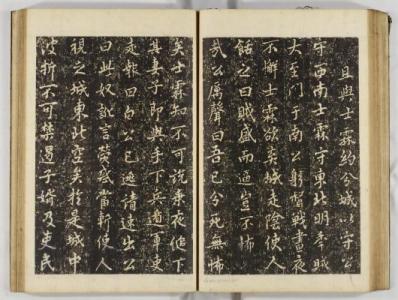 且與士霖約分城以守公
守西南士霖守東北明年賊
大至門于南公躬督戰晝夜
不懈士霖欲棄城走陰使人
餂之曰賊盛而逼豈不怖
武公厲聲曰吾已分死無怖
矣士霖知不可說乘夜縋下
其妻子即與手下兵遁軍吏
走報曰白公已遁請速出公
曰此奴訛言熒惑當斬使人
視之城東北空矣於是城中
波折不可禁遏子婿及吏民